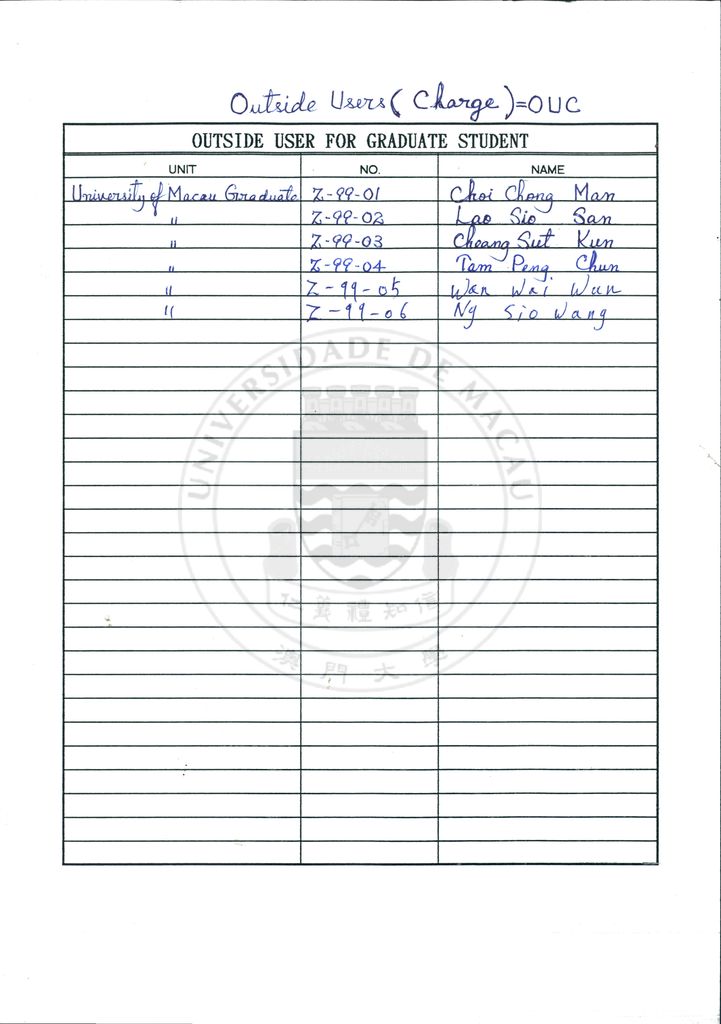 Outside Users (Charge)=OUC
OUTSIDE USER FOR GRADUATE STUDENT
UNIT NO. NAME
University of Macau Graduate Z-99-01 Choi Chong Man
" Z-99-02 Lao Sio San
" Z-99-03 Cheang Sut Kun
" Z-99-04 Tam Peng Chun
" Z-99-05 Wan Wai Wun
" Z-99-06 Ng Sio Wang
UNIVERSIDADE DE MACAU
仁義禮知信
澳門大學